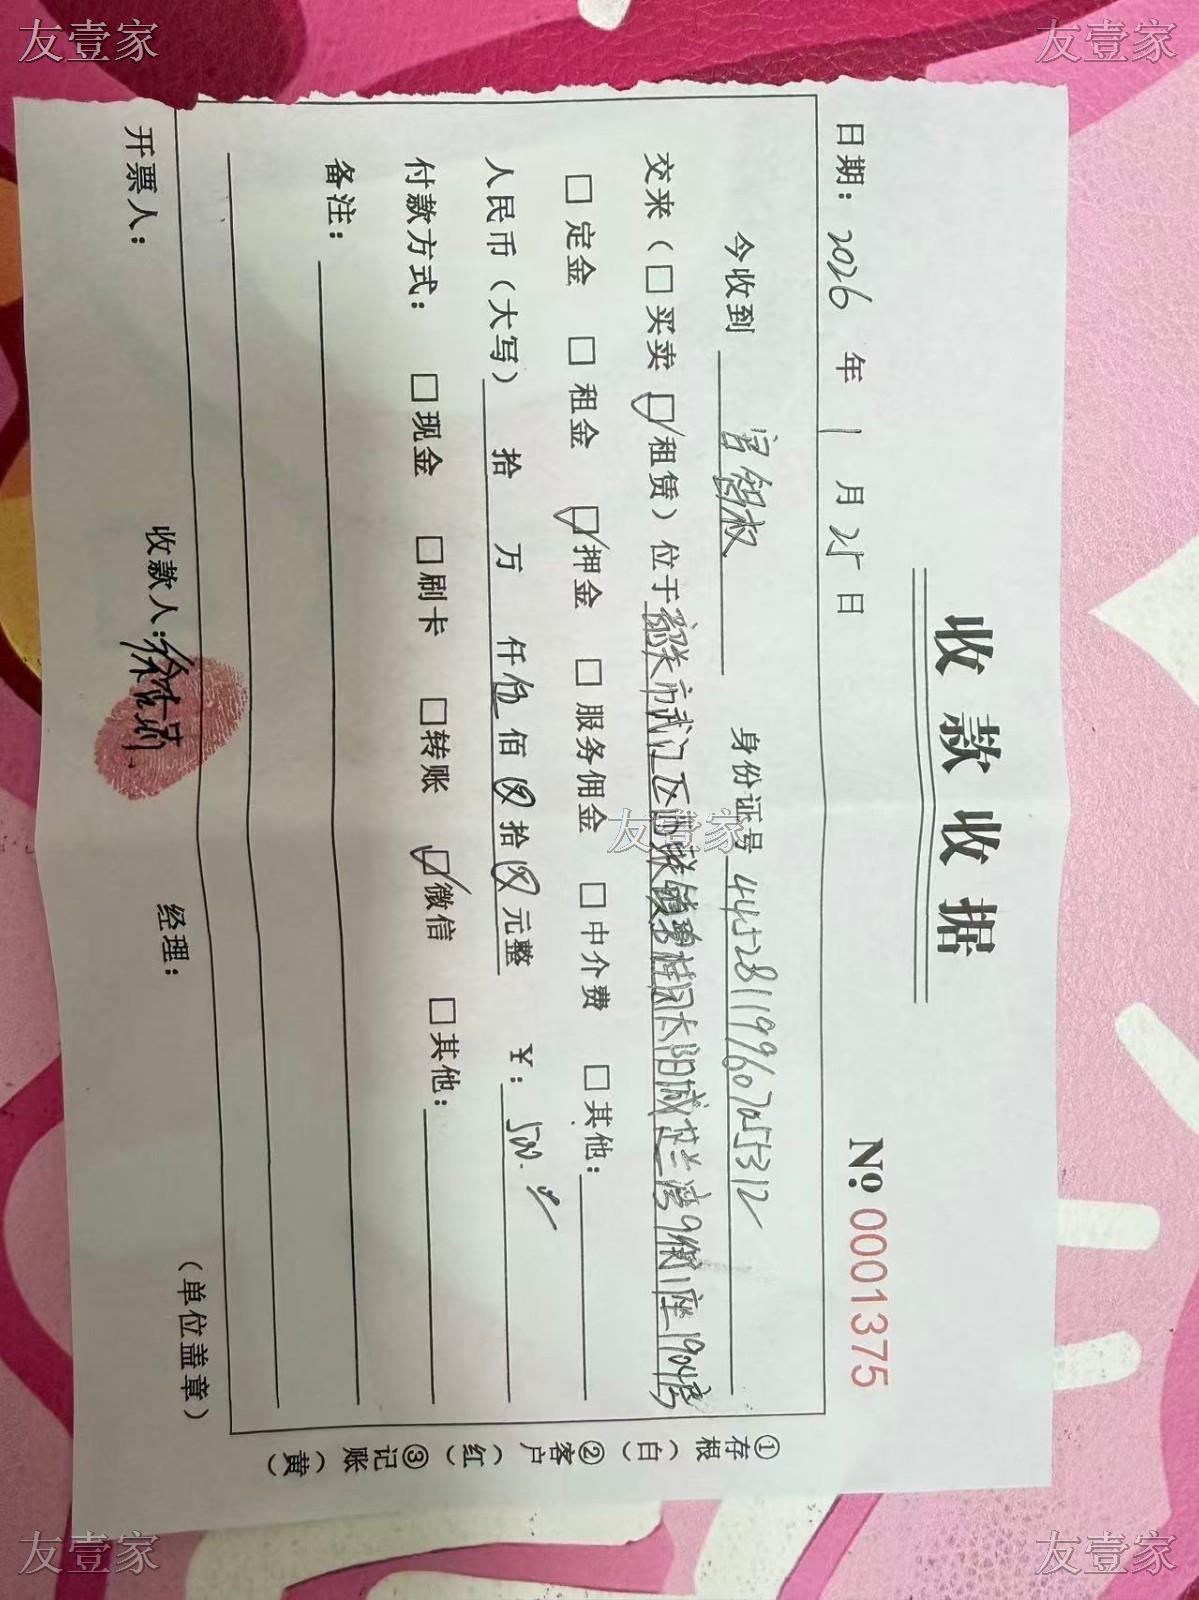 友壹家
友壹家
收款收据
No. 0001375
日期：2026年1月25日
今收到 身份证号 445281199607055312
交来（□买卖 ☑租赁）位于韶关市武江区西联镇碧桂园太阳城芷兰湾9街1座1904房
□定金 □租金 ☑押金 □服务佣金 □中介费 □其他：
人民币（大写） 拾 万 仟伍佰 拾 元整 ¥：500.
付款方式： □现金 □刷卡 □转账 ☑微信 □其他：
备注：
开票人： 收款人： 经理： （单位盖章）
①存根（白）②客户（红）③记账（黄）
友壹家
友壹家
友壹家